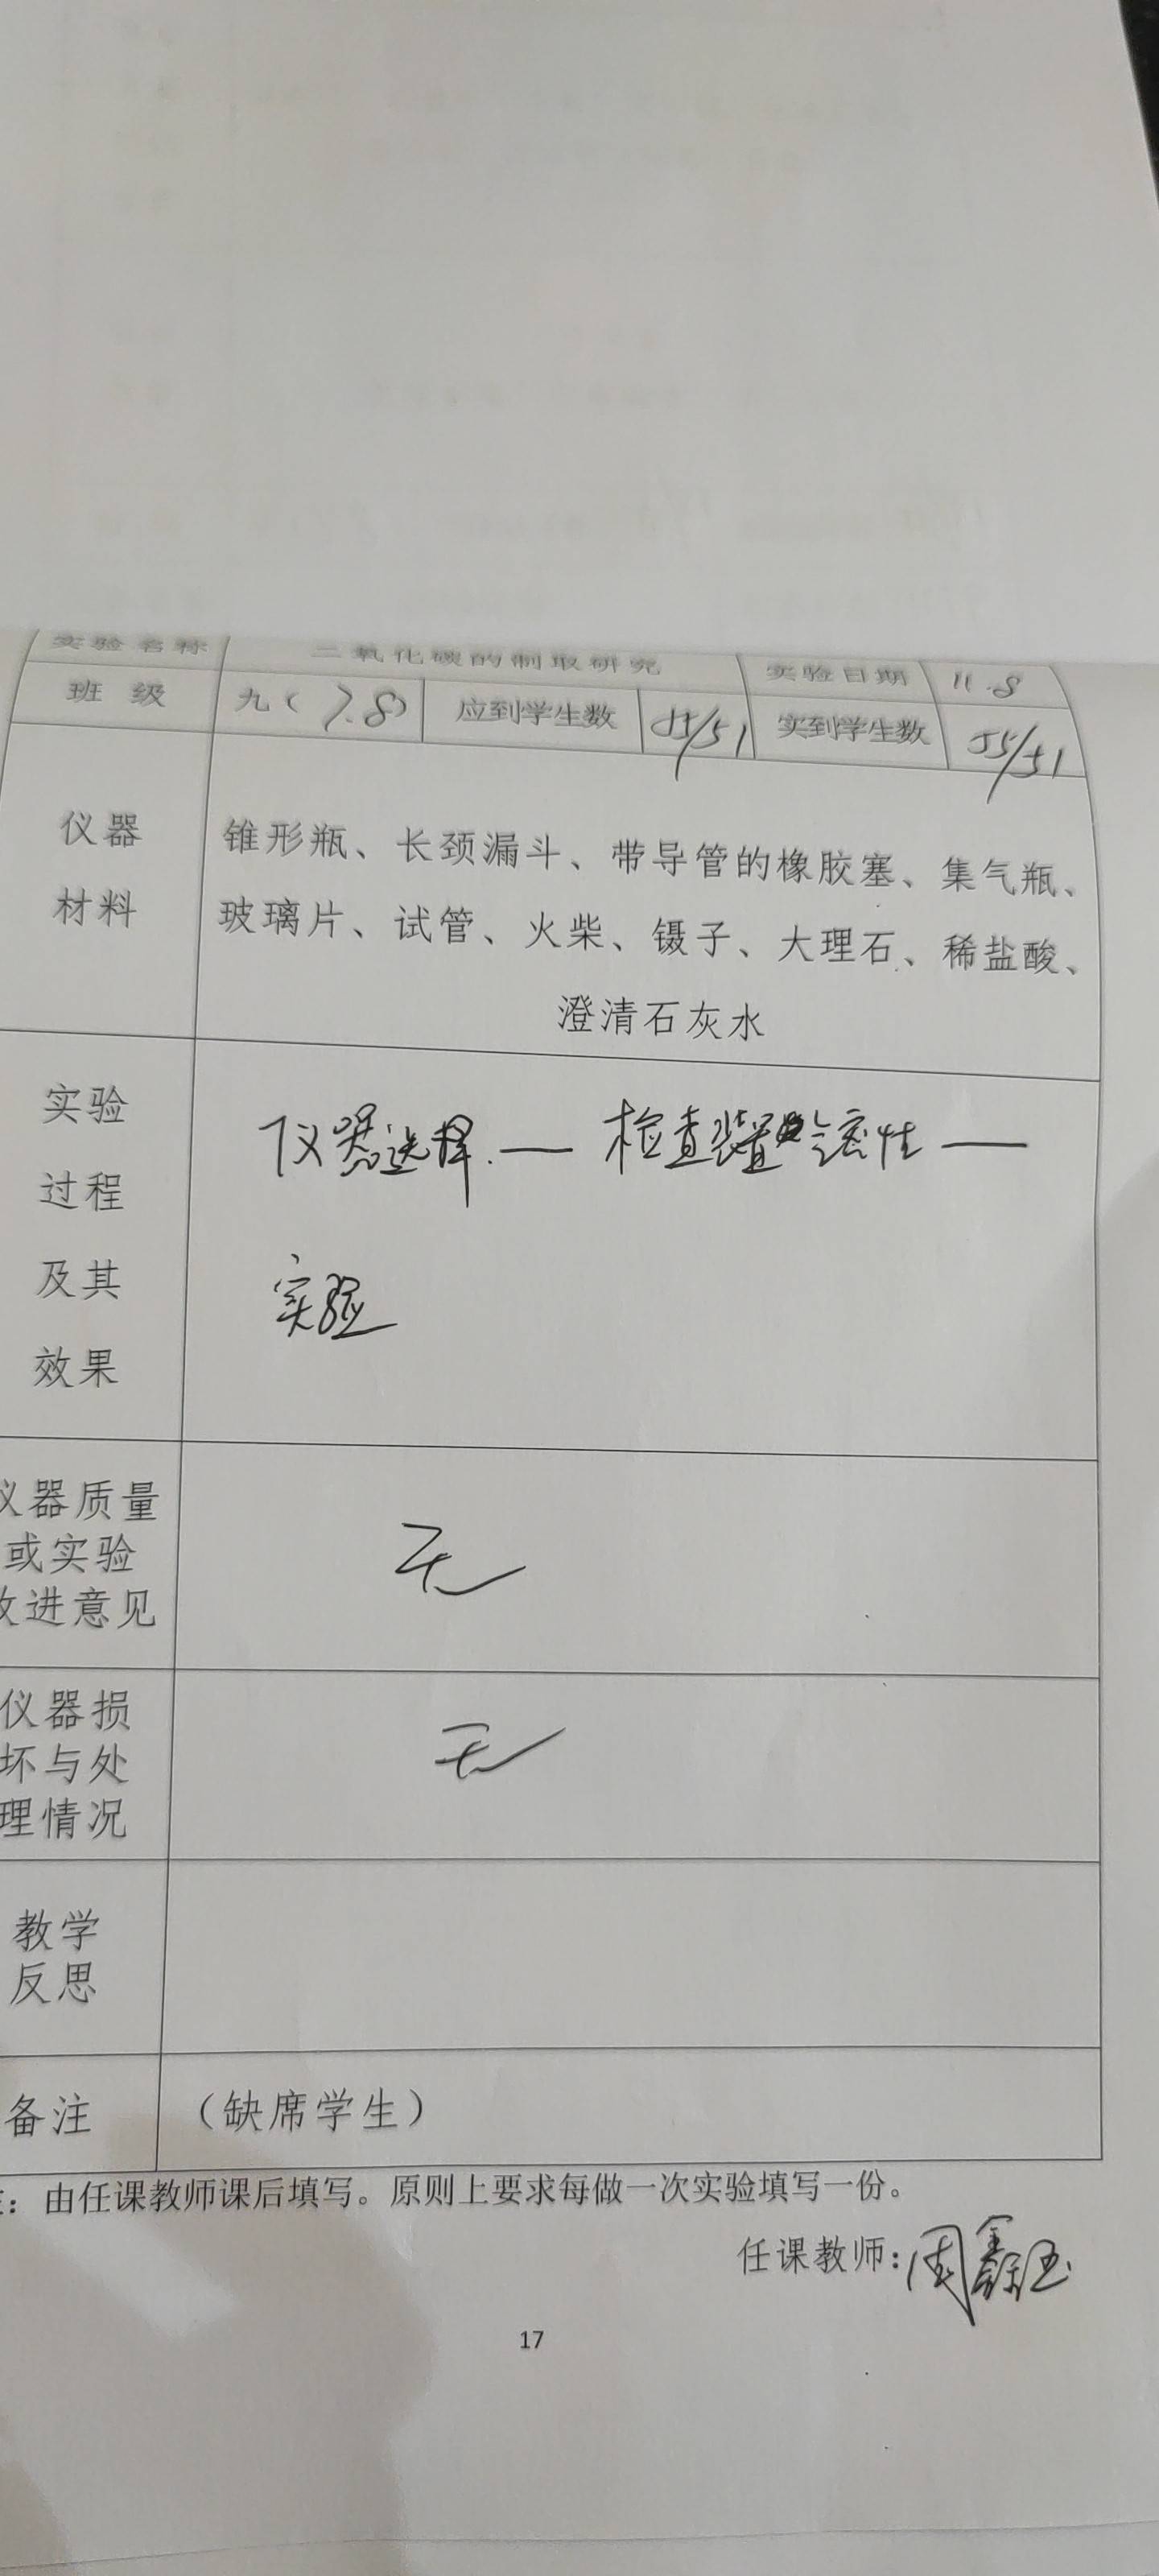 实验名称 二氧化碳的制取研究 实验日期 11.8
班 级 九（7.8） 应到学生数 55/51 实到学生数 55/51
仪器
材料
锥形瓶、长颈漏斗、带导管的橡胶塞、集气瓶、
玻璃片、试管、火柴、镊子、大理石、稀盐酸、
澄清石灰水
实验
过程
及其
效果
仪器选择 — 检查装置气密性 —
实验
仪器质量
或实验
改进意见
无
仪器损
坏与处
理情况
无
教学
反思
备注 （缺席学生）
注：由任课教师课后填写。原则上要求每做一次实验填写一份。
任课教师：周鑫玉
17